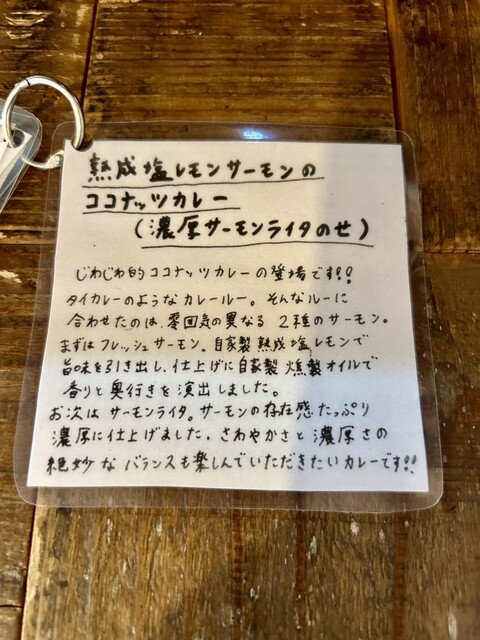 熟成塩レモンサーモンの
ココナッツカレー
(濃厚サーモンライタのせ)
じわじわ的ココナッツカレーの登場です!!
タイカレーのようなカレールー。そんなルーに
合わせたのは、雰囲気の異なる2種のサーモン。
まずはフレッシュサーモン。自家製熟成塩レモンで
旨味を引き出し、仕上げに自家製燻製オイルで
香りと奥行きを演出しました。
お次はサーモンライタ。サーモンの存在感たっぷり
濃厚に仕上げました。さわやかさと濃厚さの
絶妙なバランスも楽しんでいただきたいカレーです!!